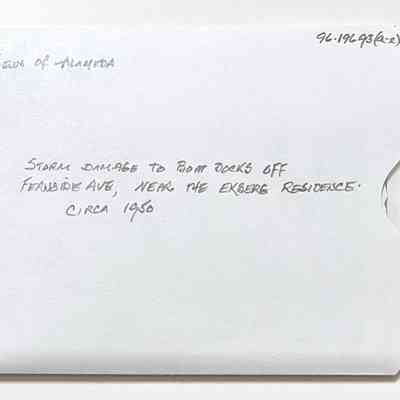 96.196.93(a-e)
Views of Alameda
STORM DAMAGE TO BOAT DOCKS OFF
FERNSIDE AVE, NEAR THE EKBERG RESIDENCE.
CIRCA 1950